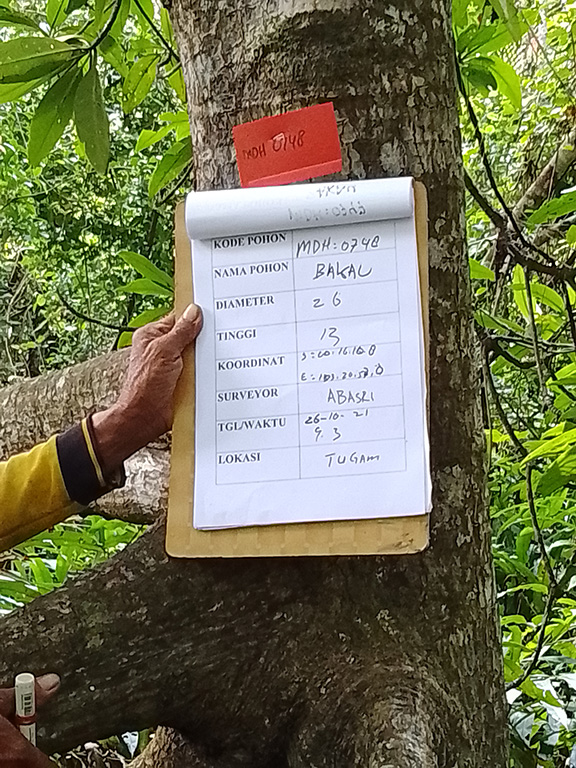 MDH 0748
KODE POHON MDH:0748
NAMA POHON BAKAU
DIAMETER 26
TINGGI 13
KOORDINAT S:00.16.16.8
E:103.20.58.8
SURVEYOR ABASRI
TGL/WAKTU 26-10-21
9.3
LOKASI TUGAM